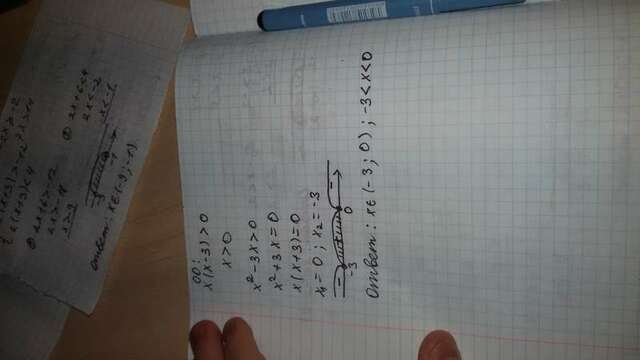 2(x+3)>-12
2(x+3)<4
① 2x+6>-12
② 2x+6<4
2x<-2
x>-9
x<-1
-9 -1
Ответ: x∈(-9; -1)
ОО:
x(x-3)>0
x>0
x²-3x>0
x²+3x=0
x(x+3)=0
x₁=0 ; x₂=-3
- + -
-3 0
Ответ: x∈(-3; 0) ; -3<x<0